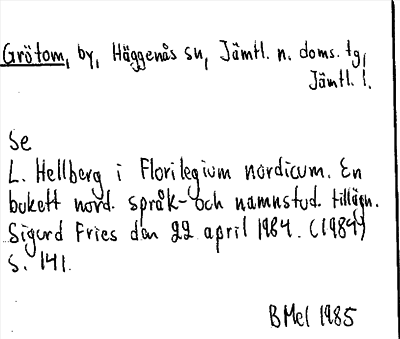 Grötom, by, Häggenås sn, Jämtl. n. doms. tg,
Jämtl. l.
Se
L. Hellberg i Florilegium nordicum. En
bukett nord. språk- och namnstud. tillägn.
Sigurd Fries den 22 april 1984. (1984)
s. 141.
BMel 1985